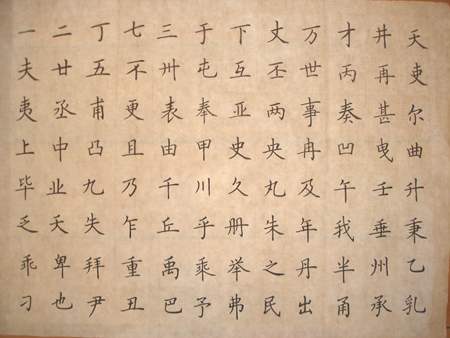 一二丁七三于下丈万才井天
夫廿五不卅屯互丕世丙再吏
夷丞甫更表奉亚两事奏甚尔
上中凸且由甲史央冉凹曳曲
毕业九乃千川久丸及午壬升
乏夭失乍丘乎册朱年我垂秉
乖卑拜重禹乘举之丹半州乙
刁也尹丑巴予弗民出甬承乳